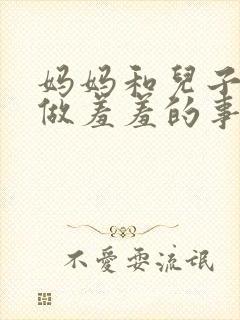 妈妈和兒子
做羞羞的事
不愛耍流氓